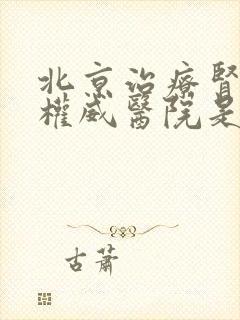 北京治療腎
權威醫院是
古蕭